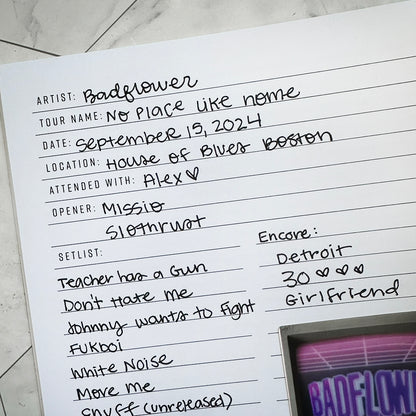 ARTIST: Badflower
TOUR NAME: No Place Like Home
DATE: September 15, 2024
LOCATION: House of Blues Boston
ATTENDED WITH: Alex♡
OPENER: Missio
Slothrust
SETLIST:
Teacher has a Gun
Don't Hate Me
Johnny wants to Fight
FUKboi
White Noise
Move Me
Snuff (unreleased)
Encore:
Detroit
30 ♡ ♡ ♡
Girlfriend
BADFLOW